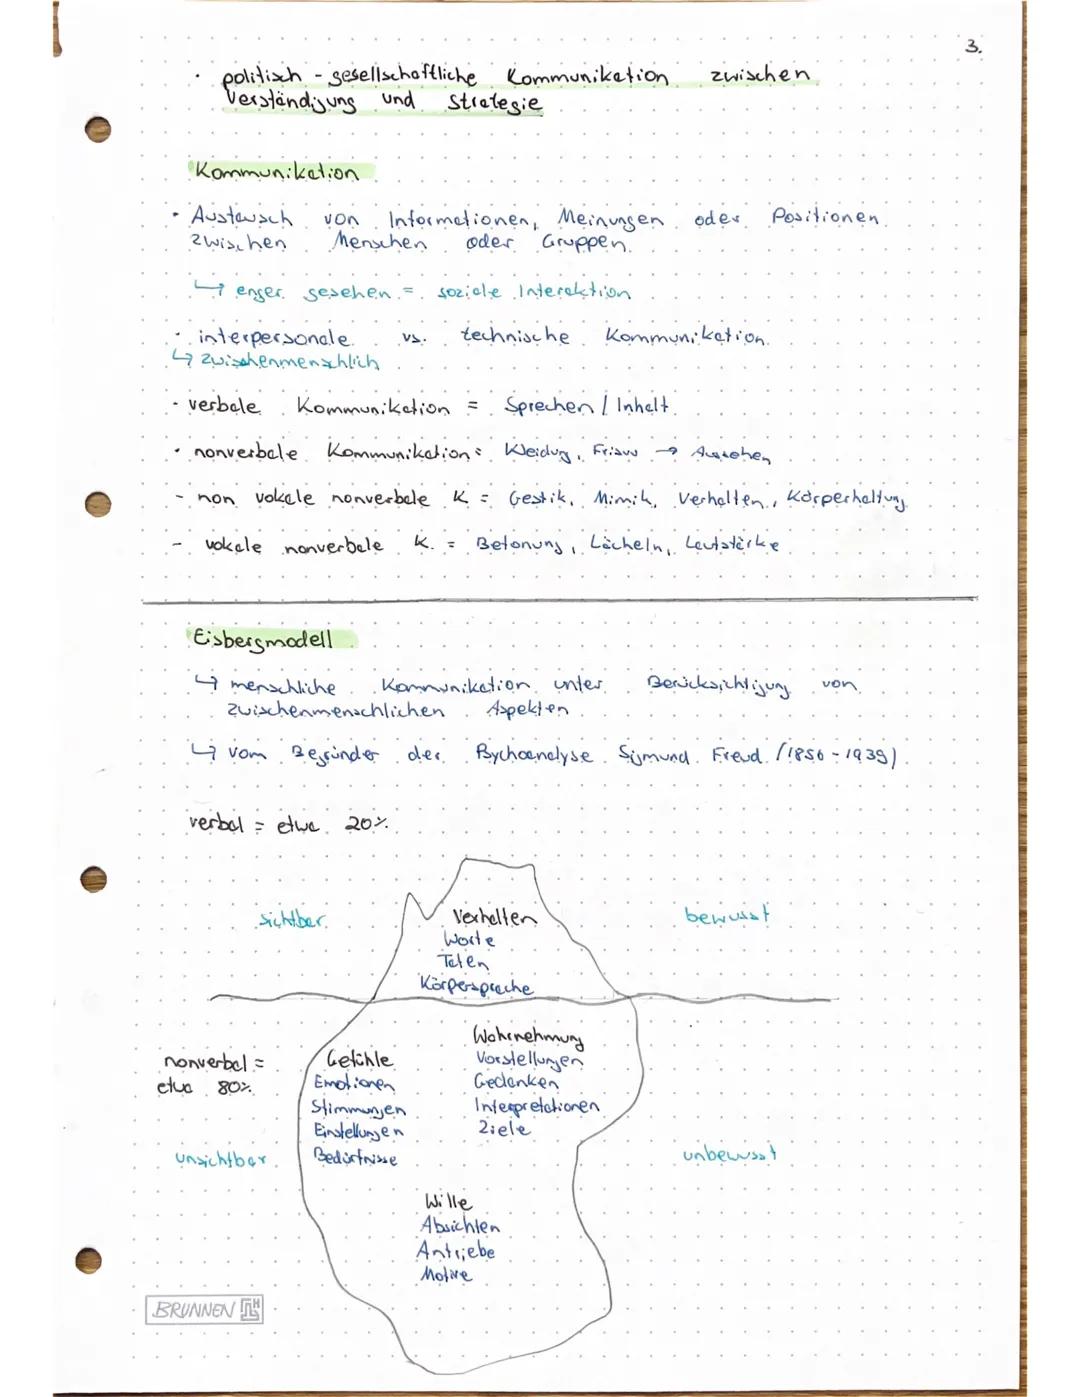 3.
· politisch - gesellschaftliche Kommunikation zwischen
Verständigung und Strategie
Kommunikation
· Austausch von Informationen, Meinungen oder Positionen
zwischen Menschen oder Gruppen.
↳ enger gesehen = soziale Interaktion
· interpersonale vs. technische Kommunikation
↳ zwischenmenschlich
· verbale Kommunikation = Sprechen / Inhalt
· nonverbale Kommunikation = Kleidung, Frisur → Aussehen
- non vokale nonverbale K = Gestik, Mimik, Verhalten, Körperhaltung
- vokale nonverbale K. = Betonung, Lächeln, Lautstärke
Eisbergmodell
↳ menschliche Kommunikation unter Berücksichtigung von
zwischenmenschlichen Aspekten
↳ vom Begründer der Psychoanalyse Sigmund Freud (1856 - 1939)
verbal = etwa 20%
sichtbar Verhalten bewusst
Worte
Taten
Körpersprache
Wahrnehmung
nonverbal = Gefühle Vorstellungen
etwa 80% Emotionen Gedanken
Stimmungen Interpretationen
Einstellungen Ziele
unsichtbar Bedürfnisse unbewusst
Wille
Absichten
Antriebe
Motive
BRUNNEN